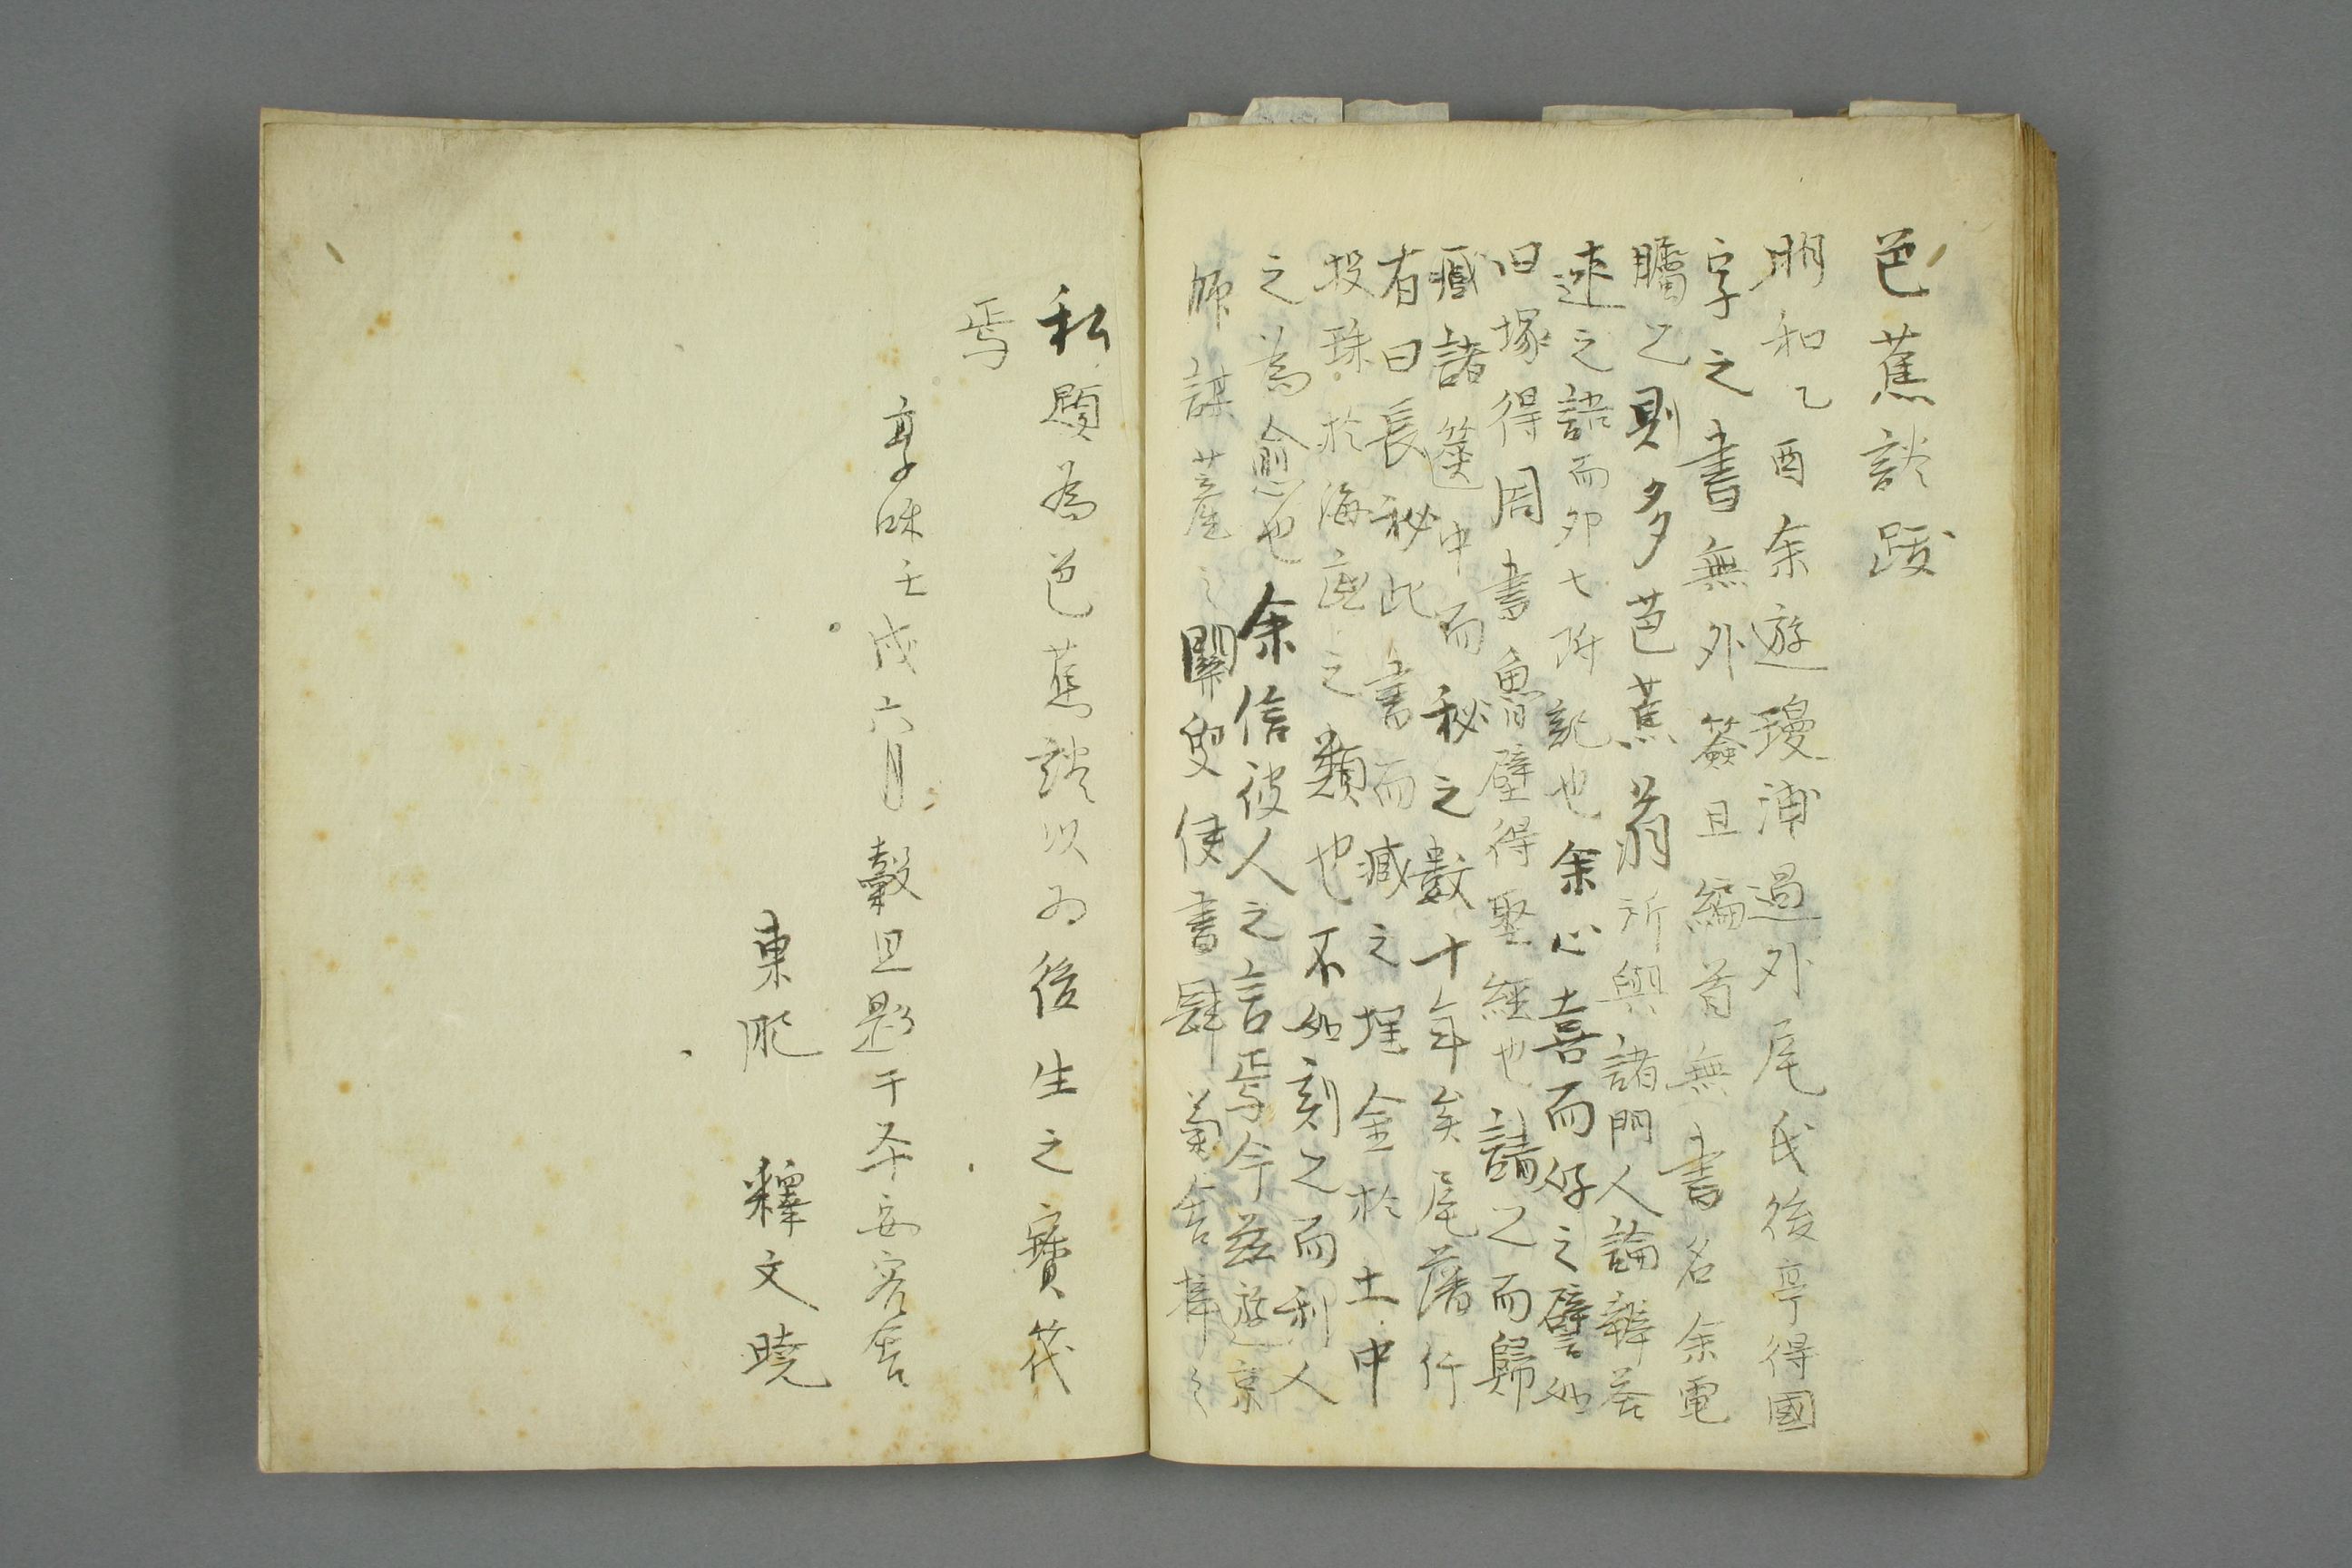 芭蕉談跋
明和乙酉余遊瓊浦過外尾氏後亭得國
字之書無外簽且編首無書名余電
矚之則多芭蕉翁所與諸門人論辨茖
速之語而外七附記也余心喜而仔之譬如
曰塚得周書魯壁得聖經也請之而歸
藏諸篋中而秘之數十年矣尾藩行
者曰長秘此書而藏之埋金於土中
投珠於海底之類也不如刻之而利人
之為愈也余信彼人之言焉今茲遊京
師謀蕉庵之關叟使書肆菊舎梓之
私題為芭蕉談以為後生之寶筏
焉
享咊壬戌六月穀旦題于平安客舎
東肥 釋文曉